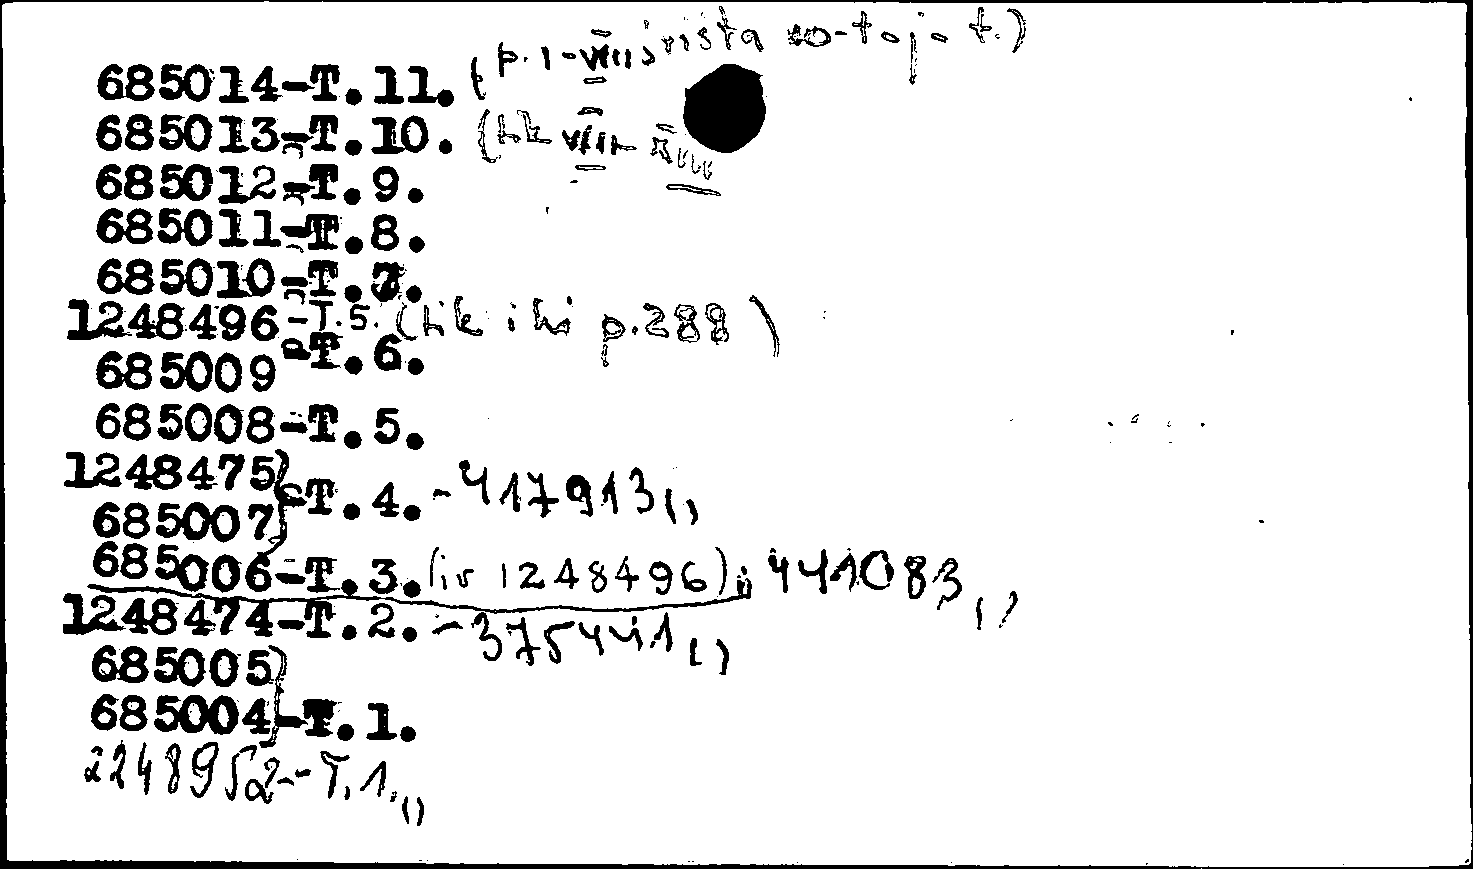 685014-T.11. (p. 1-VIII
685013-T.10. (tik VIII-XIII
685012-T.9.
685011-T.8.
685010-T.7.
1248496-T.5. (tik iki p.288)
685009-T.6.
685008-T.5.
1248475}
685007}-T.4.-417913,()
685006-T.3.(ir 1248496); 441083,()
1248474-T.2.-375441,()
685005}
685004}-T.1.
2248952--T.1.,()